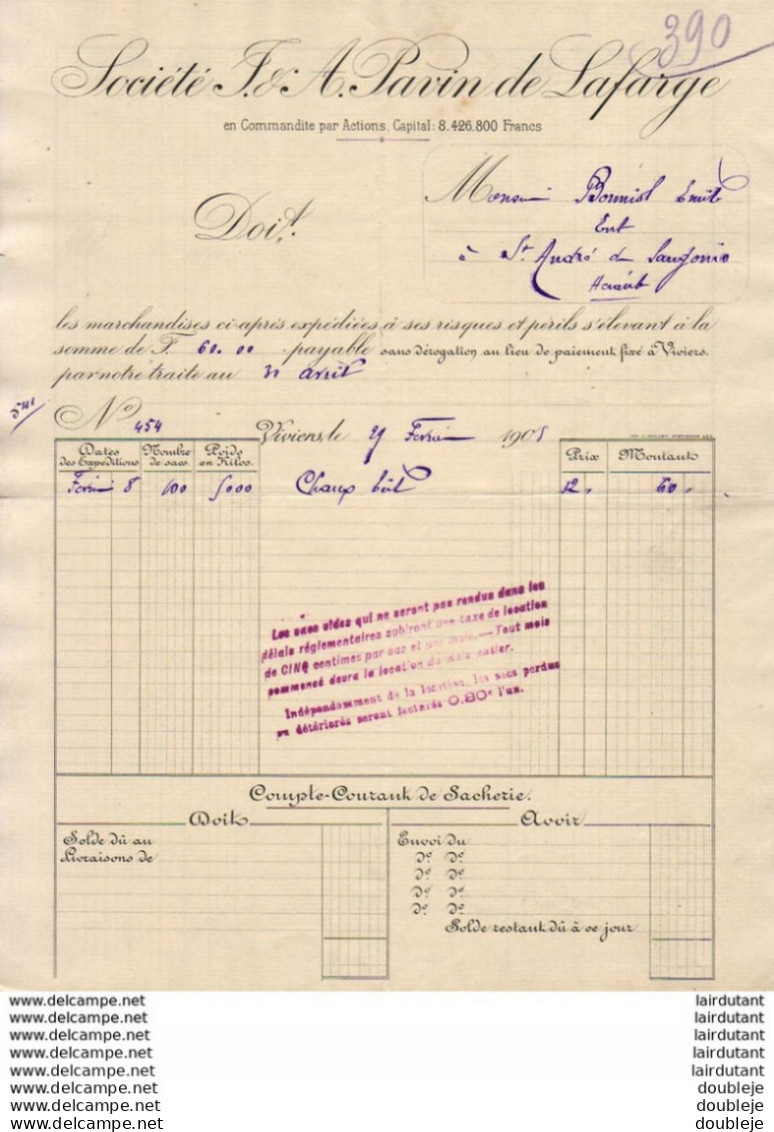 390
Société J. & A. Pavin de Lafarge
en Commandite par Actions, Capital: 8.426.800 Francs
Doit
Monsieur Emile
Ent
à St André de Sangonis
Hérault
les marchandises ci-après expédiées à ses risques et périls s'élevant à la
somme de F. 60.00 payable sans dérogation au lieu de paiement fixé à Viviers.
par notre traite au 30 avril
No 454 Viviers, le Février 190
Dates des Expéditions Nombre de sacs Poids en Kilos Prix Montants
Février 8 100 5000 Chaux 12 60
Les sacs vides qui ne seront pas rendus dans les
délais réglementaires subiront une taxe de location
de CINQ centimes par sac et par mois. — Tout mois
commencé devra la location du mois entier.
Indépendamment de la location, les sacs perdus
ou détériorés seront facturés 0.80c l'un.
Compte-Courant de Sacherie.
Doit Avoir
Solde dû au Envoi du
Livraisons de do do
do do
do do
do do
Solde restant dû à ce jour
www.delcampe.net lairdutant
www.delcampe.net lairdutant
www.delcampe.net lairdutant
www.delcampe.net lairdutant
www.delcampe.net lairdutant
www.delcampe.net doubleje
www.delcampe.net doubleje
www.delcampe.net doubleje